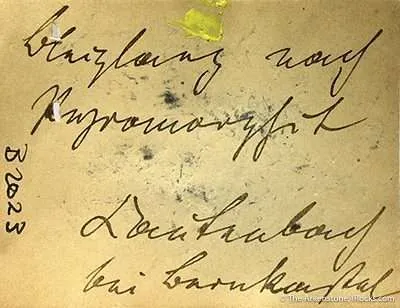 Bleiglanz nach
Pyromorphit
Kautenbach
bei Bernkastel
B2023
© The Arkenstone, iRocks.com